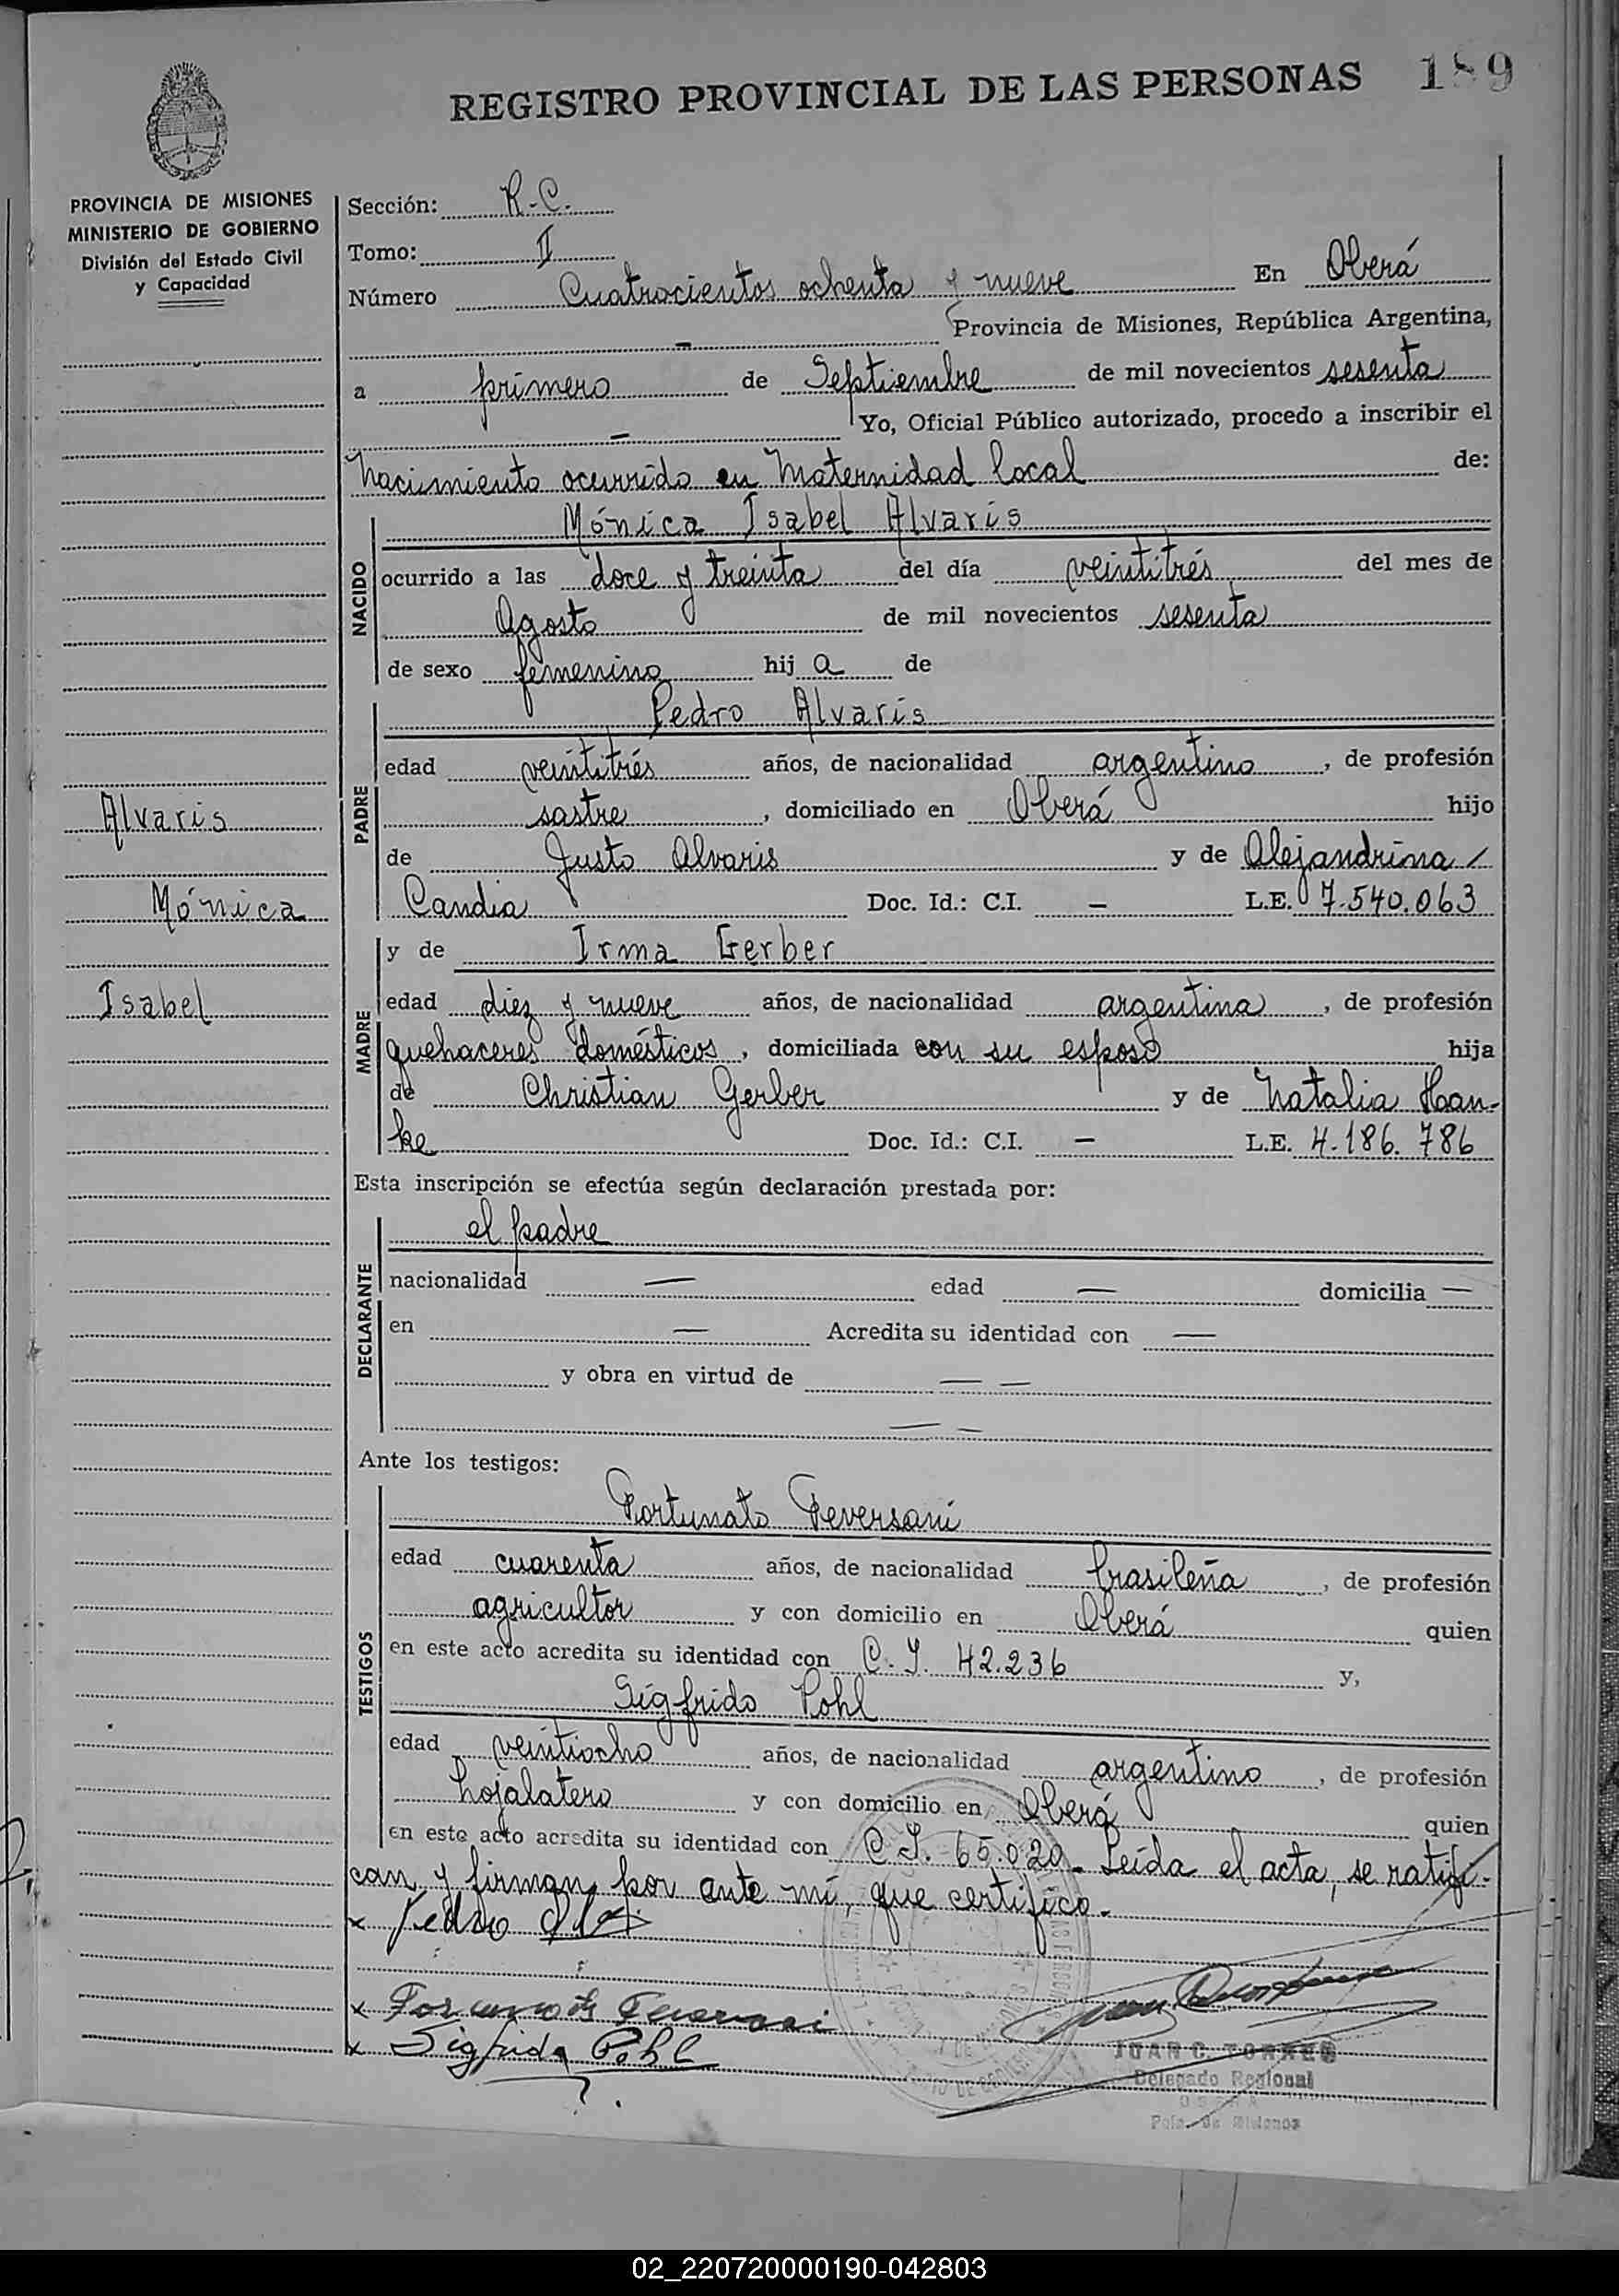 REGISTRO PROVINCIAL DE LAS PERSONAS 189
PROVINCIA DE MISIONES
MINISTERIO DE GOBIERNO
División del Estado Civil
y Capacidad
Alvaris
Mónica
Isabel
Sección: R.C.
Tomo: II
Número Cuatrocientos ochenta y nueve En Oberá
— Provincia de Misiones, República Argentina,
a primero de Septiembre de mil novecientos sesenta
— Yo, Oficial Público autorizado, procedo a inscribir el
Nacimiento ocurrido en Maternidad local de:
NACIDO
Mónica Isabel Alvaris
ocurrido a las doce y treinta del día veintitrés del mes de
Agosto de mil novecientos sesenta
de sexo femenino hij a de
PADRE
Pedro Alvaris
edad veintitrés años, de nacionalidad argentino, de profesión
sastre, domiciliado en Oberá hijo
de Justo Alvaris y de Alejandrina /
Candia Doc. Id.: C.I. — L.E. 7.540.063
MADRE
y de Irma Gerber
edad diez y nueve años, de nacionalidad argentina, de profesión
quehaceres domésticos, domiciliada con su esposo hija
de Christian Gerber y de Natalia Haan-
ke Doc. Id.: C.I. — L.E. 4.186.786
Esta inscripción se efectúa según declaración prestada por:
DECLARANTE
el padre
nacionalidad — edad — domicilia —
en — Acredita su identidad con —
y obra en virtud de — —
— —
Ante los testigos:
TESTIGOS
Fortunato Feversani
edad cuarenta años, de nacionalidad brasileña, de profesión
agricultor y con domicilio en Oberá quien
en este acto acredita su identidad con C.I. 42.236 y,
Sigfrido Pohl
edad veintiocho años, de nacionalidad argentino, de profesión
hojalatero y con domicilio en Oberá quien
en este acto acredita su identidad con C.I. 65.020.- Leída el acta, se ratifi-
can y firman por ante mí, que certifico.-
x Pedro
x
x Sigfrido Pohl
JUAN C. TORRES
Delegado Regional
OBERA
Pcia. de Misiones
02_220720000190-042803